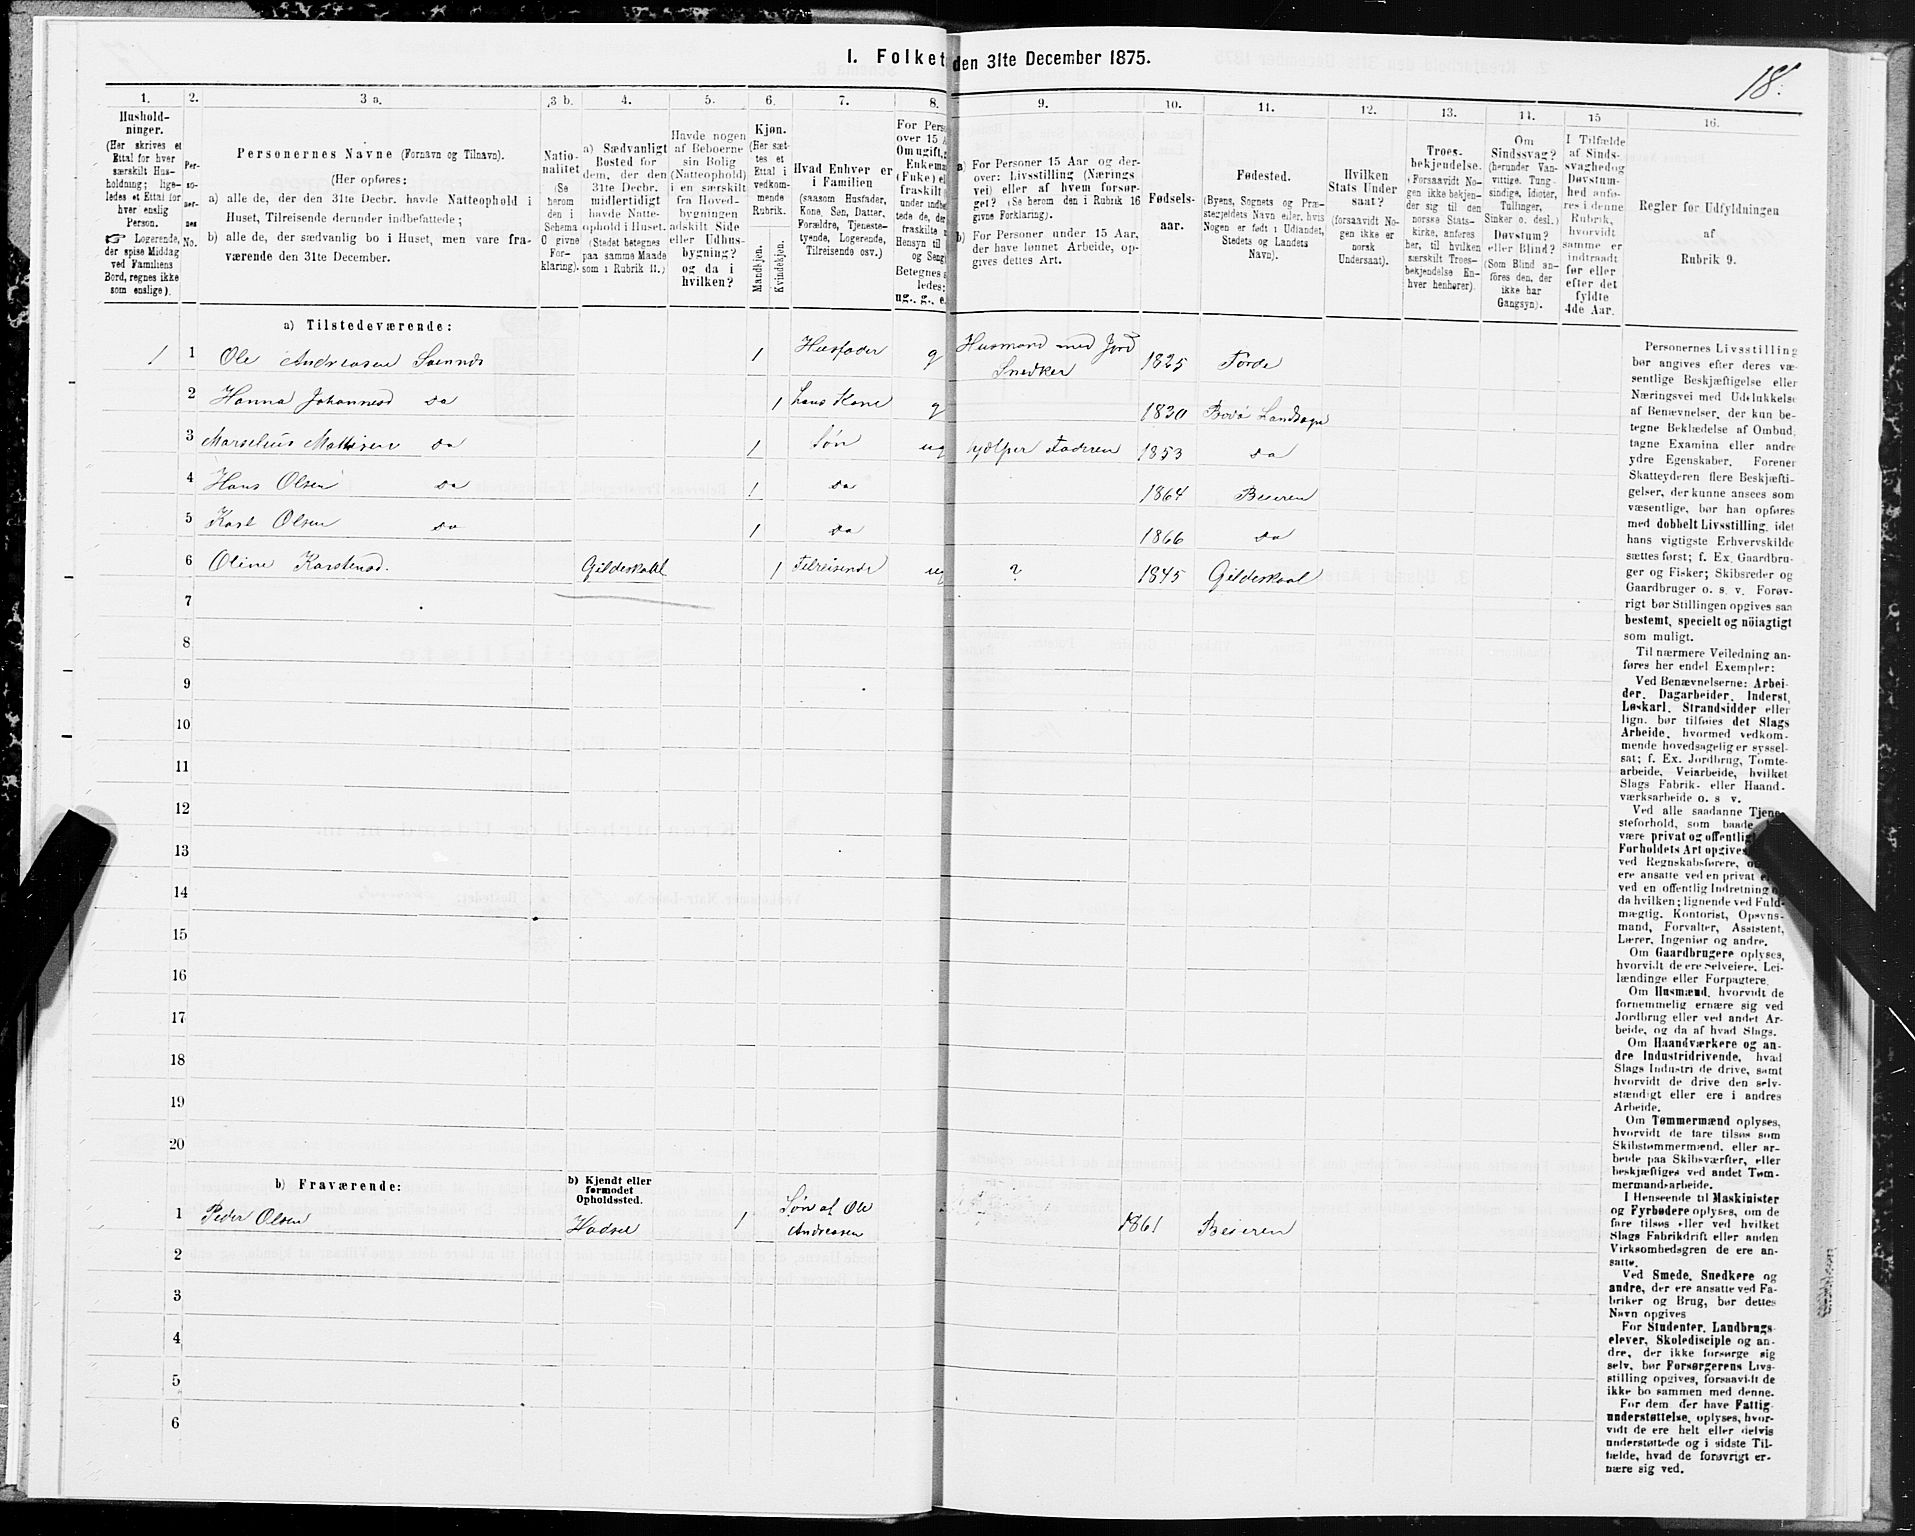 I. Folket
den 31te December 1875.
18.
1.
Hushold-
ninger.
(Her skrives et
Ettal for hver
særskilt Hus-
holdning; lige-
ledes et Ettal for
hver enslig
Person.
☞ Logerende,
der spise Middag
ved Familiens
Bord, regnes ikke
som enslige).
2.
Per-
so-
ner-
nes
No.
3 a.
Personernes Navne (Fornavn og Tilnavn).
(Her opføres:
a) alle de, der den 31te Decbr. havde Natteophold i
Huset, Tilreisende derunder indbefattede;
b) alle de, der sædvanlig bo i Huset, men vare fra-
værende den 31te December.
3 b.
Natio-
nalitet
(Se
herom
den i
Schema
C givne
For-
klaring).
4.
a) Sædvanligt
Bosted for
dem, der den
31te Decbr.
midlertidigt
havde Natte-
ophold i Huset.
(Stedet betegnes
paa samme Maade
som i Rubrik 11.)
5.
Havde nogen
af Beboerne
sin Bolig
(Natteophold)
i en særskilt
fra Hoved-
bygningen
adskilt Side
eller Udhus-
bygning?
og da i
hvilken?
6.
Kjøn.
(Her sæt-
tes et
Ettal i
vedkom-
mende
Rubrik.
Mandkjøn.
Kvindekjøn.
7.
Hvad Enhver er
i Familien
(saasom Husfader,
Kone, Søn, Datter,
Forældre, Tjeneste-
tyende, Logerende,
Tilreisende osv.)
8.
For Perso
over 15 A
Om ugift,
Enkema
(Enke) el
fraskilt
under indbe
tede de, der
fraskilte
Hensyn til
og Seng
Betegnes s
ledes:
ug., g., e.
9.
a) For Personer 15 Aar og der-
over: Livsstilling (Nærings
vei) eller af hvem forsør-
get? (Se herom den i Rubrik 16
givne Forklaring).
b) For Personer under 15 Aar,
der have lønnet Arbeide, op-
gives dettes Art.
10.
Fødsels-
aar.
11.
Fødested.
(Byens, Sognets og Præ-
stegjeldets Navn eller, hvis
Nogen er født i Udlandet,
Stedets og Landets
Navn).
12.
Hvilken
Stats Under
saat?
(forsaavidt No-
gen ikke er
norsk
Undersaat).
13.
Troes-
bekjendelse.
(Forsaavidt No-
gen ikke bekjen-
der sig til den
norske Stats-
kirke, anføres
her, til hvilken
særskilt Troes-
bekjendelse En-
hver henhører).
14.
Om
Sindssvag?
(herunder Van-
vittige, Tung-
sindige, Idioter,
Tullinger,
Sinker o. desl.)
Døvstum?
eller Blind?
(Som Blind an-
føres den, der
ikke har
Gangsyn).
15
I Tilfælde
af Sinds-
svaghed og
Døvstum-
hed anfø-
res i denne
Rubrik,
hvorvidt
samme er
indtraadt
før eller
efter det
fyldte
4de Aar.
16.
Regler for Udfyldningen
af
Rubrik 9.
a) Tilstedeværende:
1 1 Ole Andreasen 1 Husfader g Husmand med Jord Snedker 1825 Førde
2 Hanna Johannesd Do 1 hans Kone g 1830 Bodø Landsogn
3 Marselius Do 1 Søn ug hjælper Faderen 1853 Do
4 Hans Olsen Do 1 Do 1864 Beieren
5 Karl Olsen Do 1 Do 1866 Do
6 Oline Karstensd. Gildeskaal 1 Tilreisende ug ? 1845 Gildeskaal
7
8
9
10
11
12
13
14
15
16
17
18
19
20
b) Fraværende:
b) Kjendt eller
formodet
Opholdssted.
1 Peder Olsen Hadsel 1 Søn af Ole Andreasen 1861 Beieren
2
3
4
5
6
Personernes Livsstilling
bør angives efter deres væ-
sentlige Beskjæftigelse eller
Næringsvei med Udelukkelse
af Benævnelser, der kun be-
tegne Beklædelse af Ombud,
tagne Examina eller andre
ydre Egenskaber. Forener
Skatteyderen flere Beskjæfti-
gelser, der kunne ansees som
væsentlige, bør han opføres
med dobbelt Livsstilling, idet
hans vigtigste Erhvervskilde
sættes først; f. Ex. Gaardbru-
ger og Fisker; Skibsreder og
Gaardbruger o. s. v. Forøv-
rigt bør Stillingen opgives saa
bestemt, specielt og nöiagtigt
som muligt.
Til nærmere Veiledning an-
føres her endel Exempler:
Ved Benævnelserne: Arbei-
der, Dagarbeider, Inderst,
Løskarl, Strandsidder eller
lign. bør tilføies det Slags
Arbeide, hvormed vedkom-
mende hovedsagelig er syssel-
sat; f. Ex. Jordbrug, Tomte-
arbeide, Veiarbeide, hvilket
Slags Fabrik- eller Haand-
værksarbeide o. s v.
Ved alle saadanne Tjene-
steforhold, som baade
være privat og offentlig
Forholdets Art opgives
ved Regnskabsførere,
ere ansatte ved en privat
ved en offentlig Indretning
da hvilken; lignende ved Fuld-
mægtig, Kontorist, Opsyns-
mand, Forvalter, Assistent,
Lærer, Ingeniør og andre.
Om Gaardbrugere oplyses,
hvorvidt de ere Selveiere, Lei-
lændinge eller Forpagtere.
Om Husmænd, hvorvidt de
fornemmelig ernære sig ved
Jordbrug eller ved andet Ar-
beide, og da af hvad Slags.
Om Haandværkere og an-
dre Industridrivende, hvad
Slags Industri de drive, samt
hvorvidt de drive den selv-
stændigt eller ere i andres
Arbeide.
Om Tømmermænd oplyses,
hvorvidt de fare tilsøs som
Skibstømmermænd, eller ar-
beide paa Skibsværfter, eller
beskjæftiges ved andet Tøm-
mermandsarbeide.
I Henseende til Maskinister
og Fyrbødere oplyses, om de
fare tilsøs eller ved hvilket
Slags Fabrikdrift eller anden
Virksomhedsgren de ere an-
satte.
Ved Smede, Snedkere og
andre, der ere ansatte ved Fa-
briker og Brug, bør dettes
Navn opgives
For Studenter, Landbrugs-
elever, Skoledisciple og an-
dre, der ikke forsørge sig
selv, bør Forsørgerens Livs-
stilling opgives, forsaavidt de
ikke bo sammen med denne.
For dem der have Fattig-
understøttelse, oplyses, hvor-
vidt de ere helt eller delvis
understøttede og i sidste Til-
fælde, hvad de forøvrigt er-
nære sig ved.